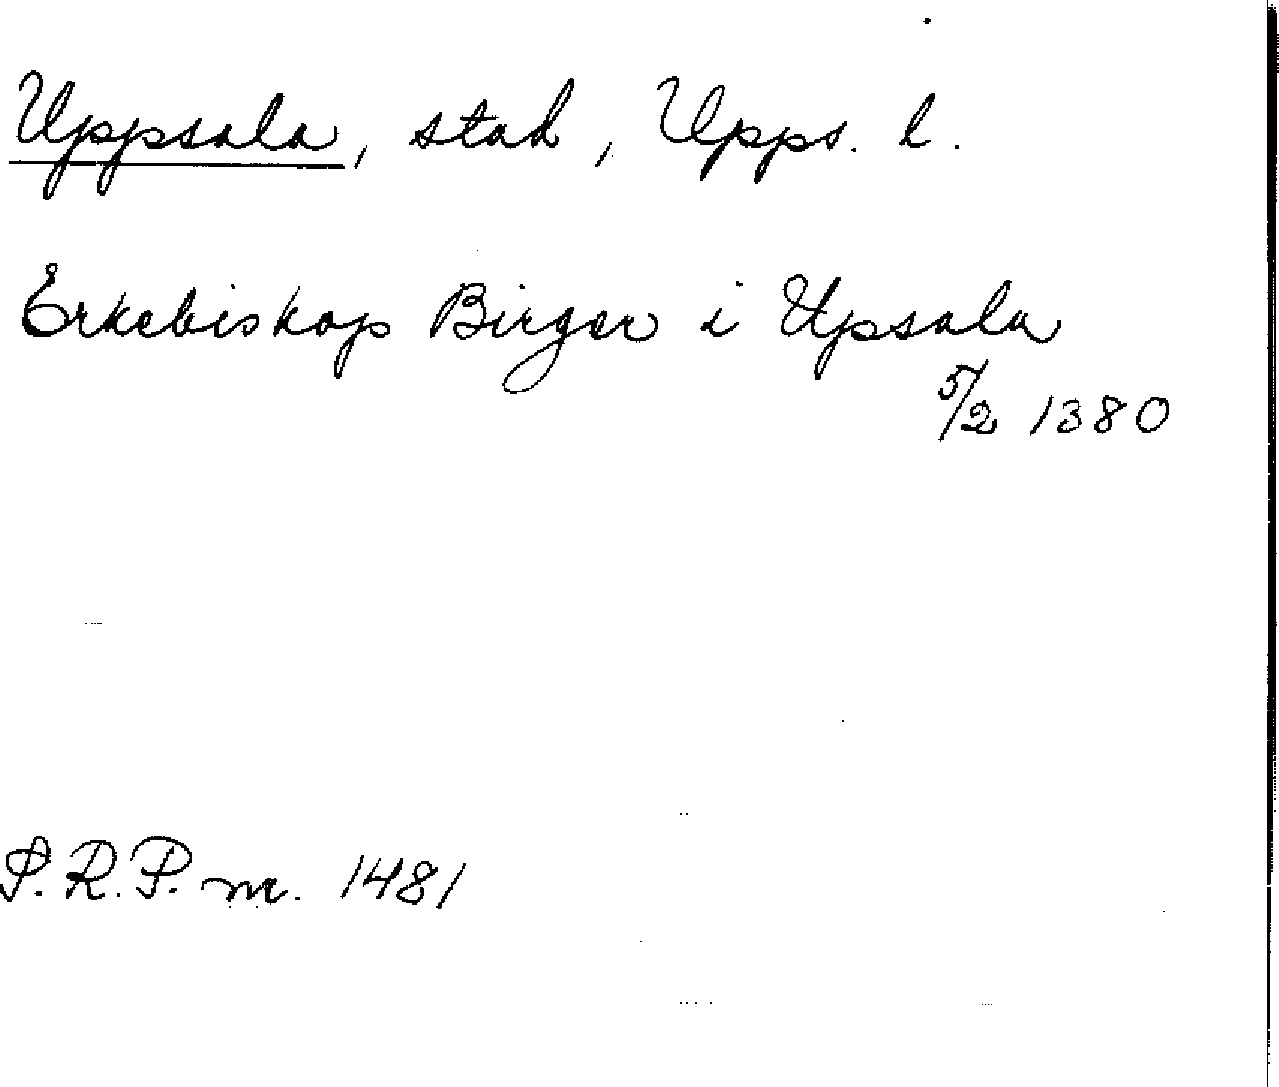 Uppsala, stad, Upps. l.
Erkebiskop Birger i Upsala
5/2 1380
S.R.P. nr. 1481